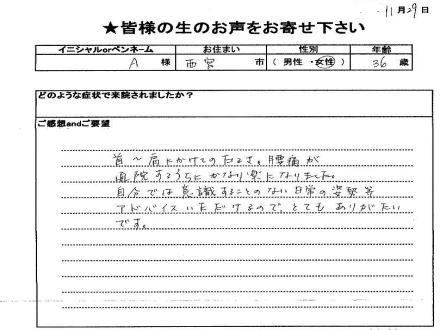 11月29日
★皆様の生のお声をお寄せ下さい
イニシャルorペンネーム お住まい 性別 年齢
A 様 西宮 市 ( 男性 ・ 女性 ) 36 歳
どのような症状で来院されましたか?
ご感想andご要望
首〜肩にかけてのだるさ。腰痛が
通院するうちにかなり楽になりました。
自分では意識することのない日常の姿勢等
アドバイスいただけるので、とてもありがたい
です。